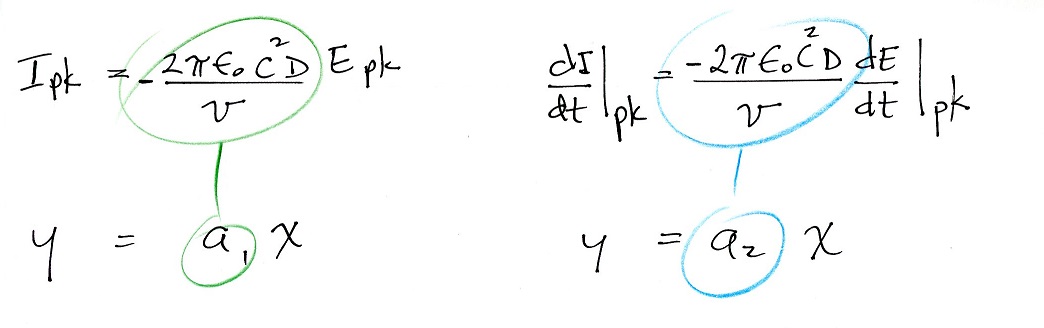 I pk = - 2πε₀c²D / v E pk
dI/dt |pk = -2πε₀c²D / v dE/dt |pk
y = a₁ x
y = a₂ x